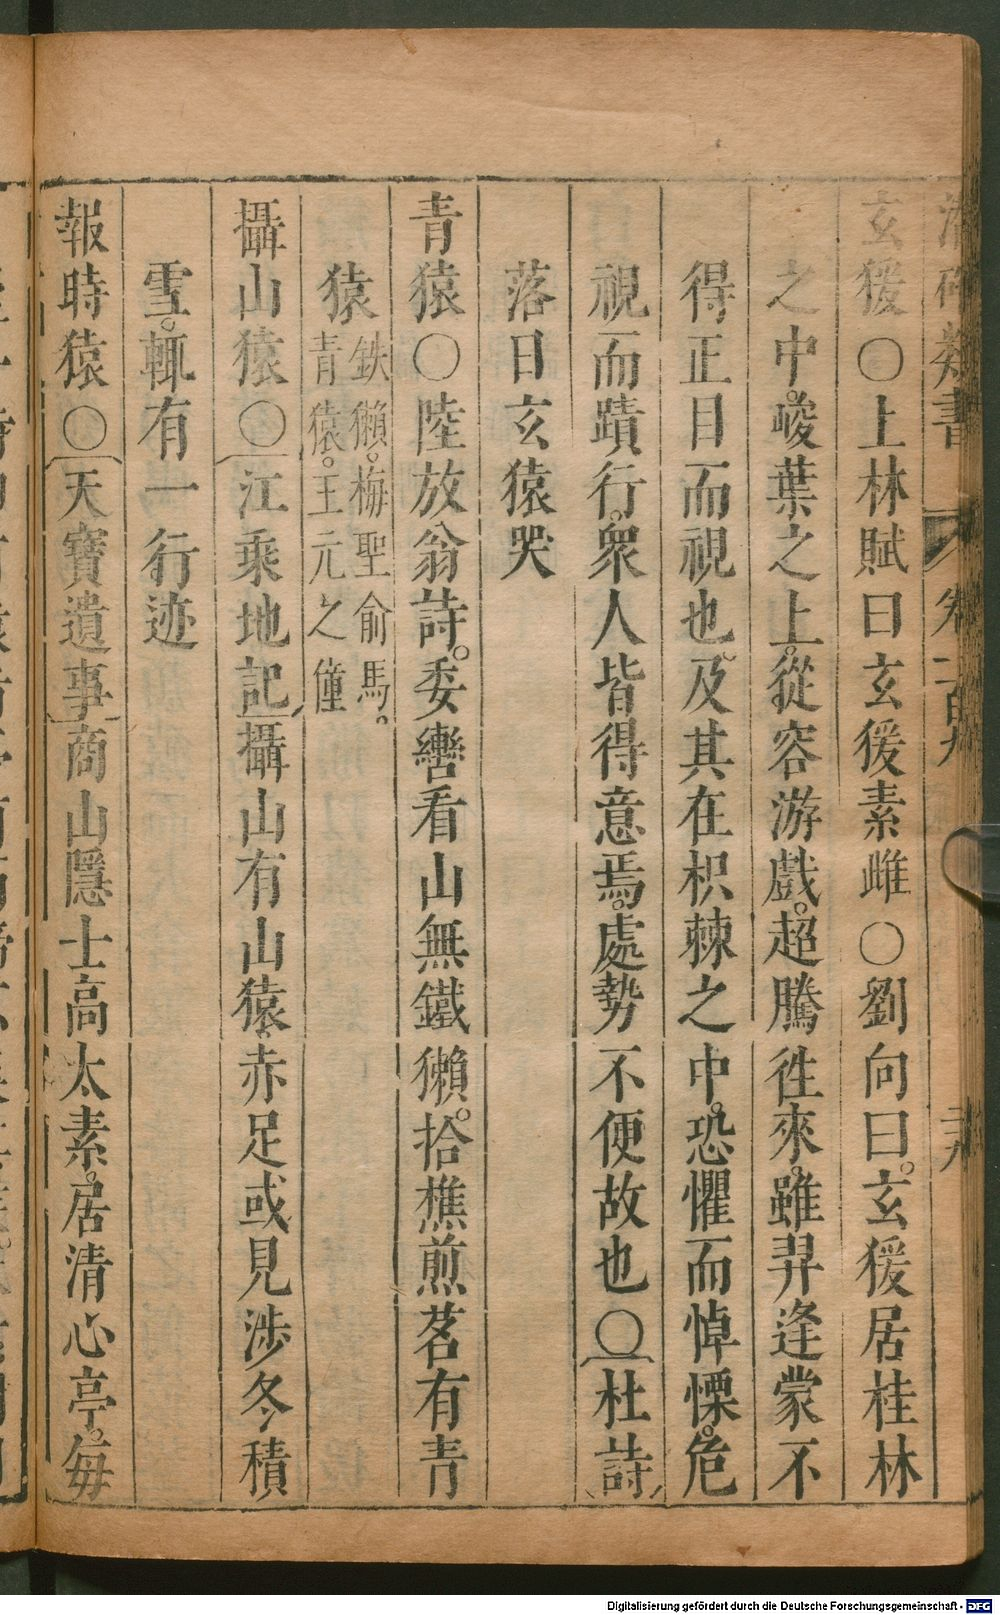 潛確類書 卷一百九 三九
玄猨〇上林賦曰玄猨素雌〇劉向曰玄猨居桂林
之中峻葉之上從容游戲超騰徃來雖羿逢蒙不
得正目而視也及其在枳棘之中恐懼而悼慄危
視而蹟行衆人皆得意焉處勢不便故也〇杜詩
落日玄猿哭
青猿〇陸放翁詩委轡看山無鐵獺拾樵煎茗有青
猿鉄獺梅聖俞馬青猿王元之僮
攝山猿〇江乘地記攝山有山猿赤足或見涉冬積
雪輒有一行迹
報時猿〇天寶遺事商山隱士高太素居清心亭每
Digitalisierung gefördert durch die Deutsche Forschungsgemeinschaft - DFG